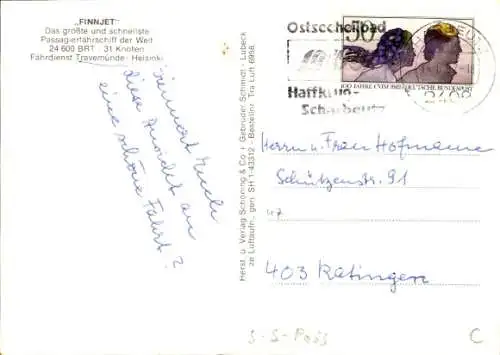 „FINNJET"
Das größte und schnellste
Passagierfährschiff der Welt
24 600 BRT 31 Knoten
Fährdienst Travemünde-Helsinki
Erinnert Euch
diese Ansicht an
eine schöne Fahrt?
Herst. u. Verlag Schöning & Co + Gebrüder Schmidt - Lübeck
ze Luftaufn., gen. SH 1-433/2 - Bestellnr. Tra Luft 6956
Ostseeheilbad
Haffkrug-
Scharbeutz
50
100 JAHRE CVJM 1982 DEUTSCHE BUNDESPOST
2408
Herrn u. Frau Hofmann
Schützenstr. 91
403 Ratingen
S-S-Pass
C